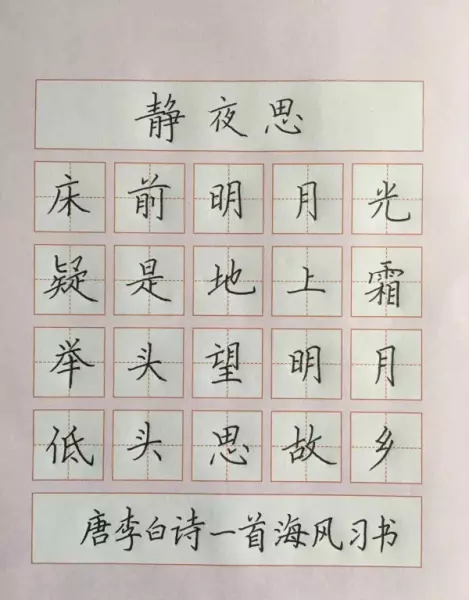 静夜思
床前明月光
疑是地上霜
举头望明月
低头思故乡
唐李白诗一首海风习书